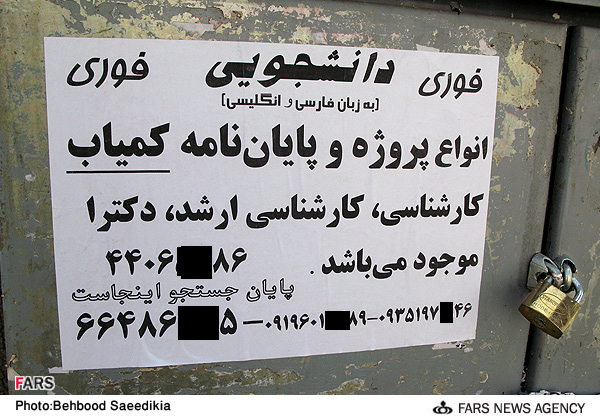 فوری دانشجویی فوری
(به زبان فارسی و انگلیسی)
انواع پروژه و پایان‌نامه کمیاب
کارشناسی، کارشناسی ارشد، دکترا
موجود می‌باشد . ۴۴۰۶ ۸۶
پایان جستجو اینجاست
۶۶۴۸۶ ۵ – ۰۹۱۹۶۰۱ ۸۹–۰۹۳۵۱۹۷ ۴۶
FARS
Photo:Behbood Saeedikia
FARS NEWS AGENCY